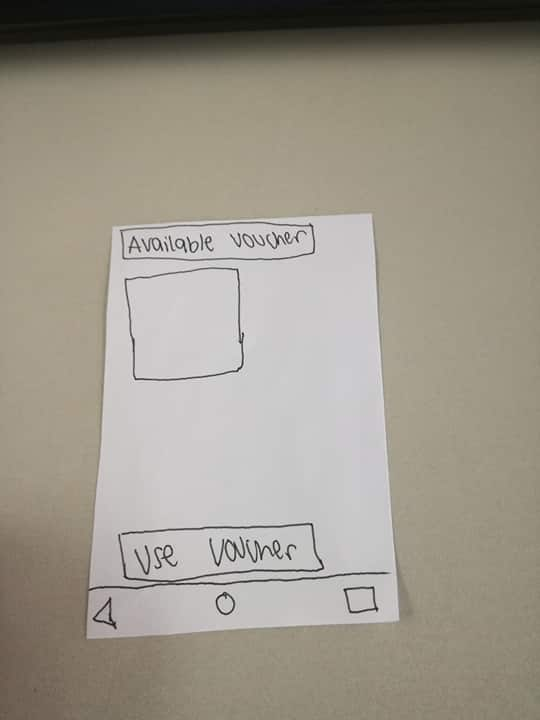 Available voucher
Use voucher